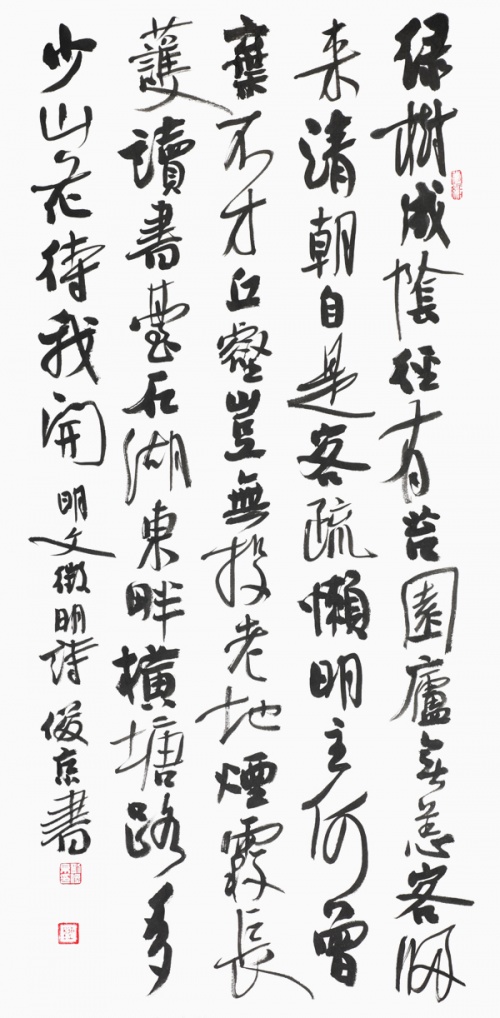 绿樹成陰徑有苔園廬無恙客歸
来清朝自是容疏懶明主何曾
棄不才丘壑豈無投老地煙霞長
護讀書臺石湖東畔橫塘路多
少山花待我開 明文徵明詩 俊京書